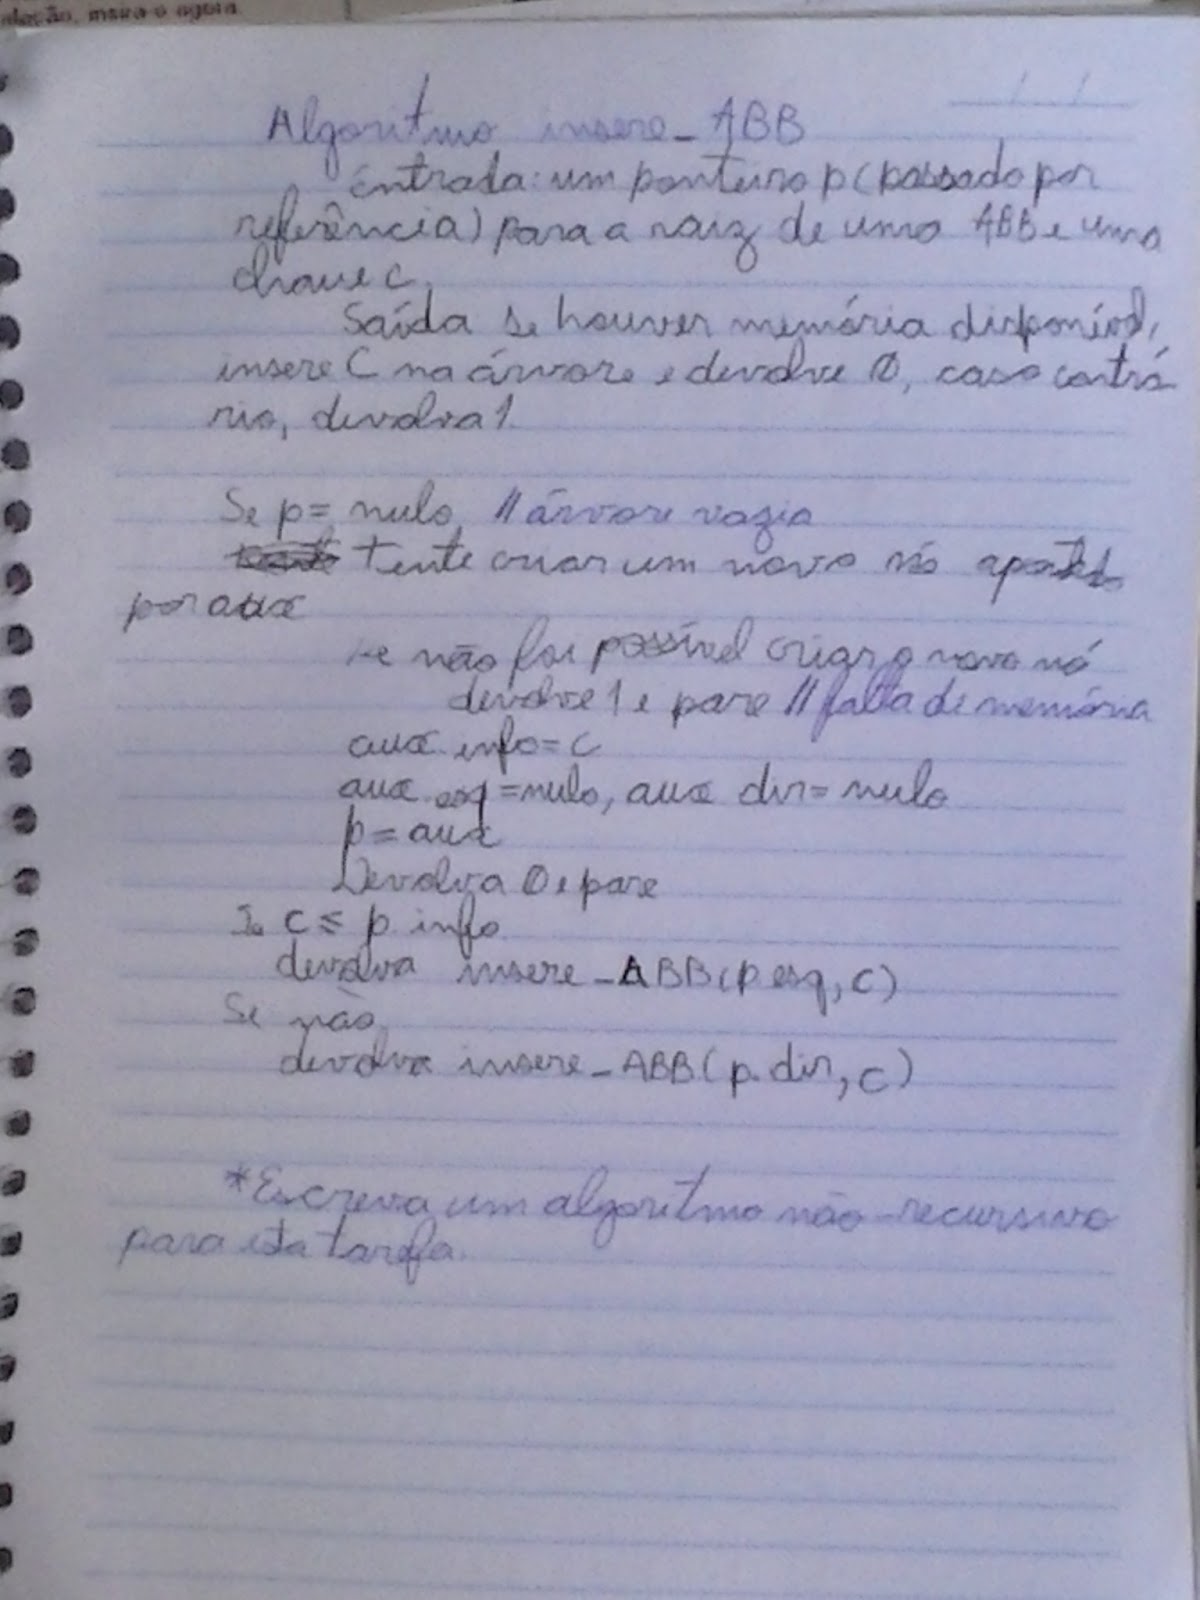 mais o agora.
Algoritmo insere_ABB
Entrada: um ponteiro p (passado por
referência) para a raiz de uma ABB e uma
chave c.
Saída se houver memória disponível,
insere C na árvore e devolve 0, caso contrá
rio, devolva 1.
Se p = nulo, // árvore vazia
Tente criar um novo nó
por aux
se não foi possível criar o novo nó
devolve 1 e pare // falta de memória
aux.info = c
aux.esq = nulo, aux dir = nulo
p = aux
Devolva 0 e pare
Se c ≤ p.info
devolva insere_ABB(p.esq, c)
Se não,
devolva insere_ABB(p.dir, c)
*Escreva um algoritmo não-recursivo
para esta tarefa.